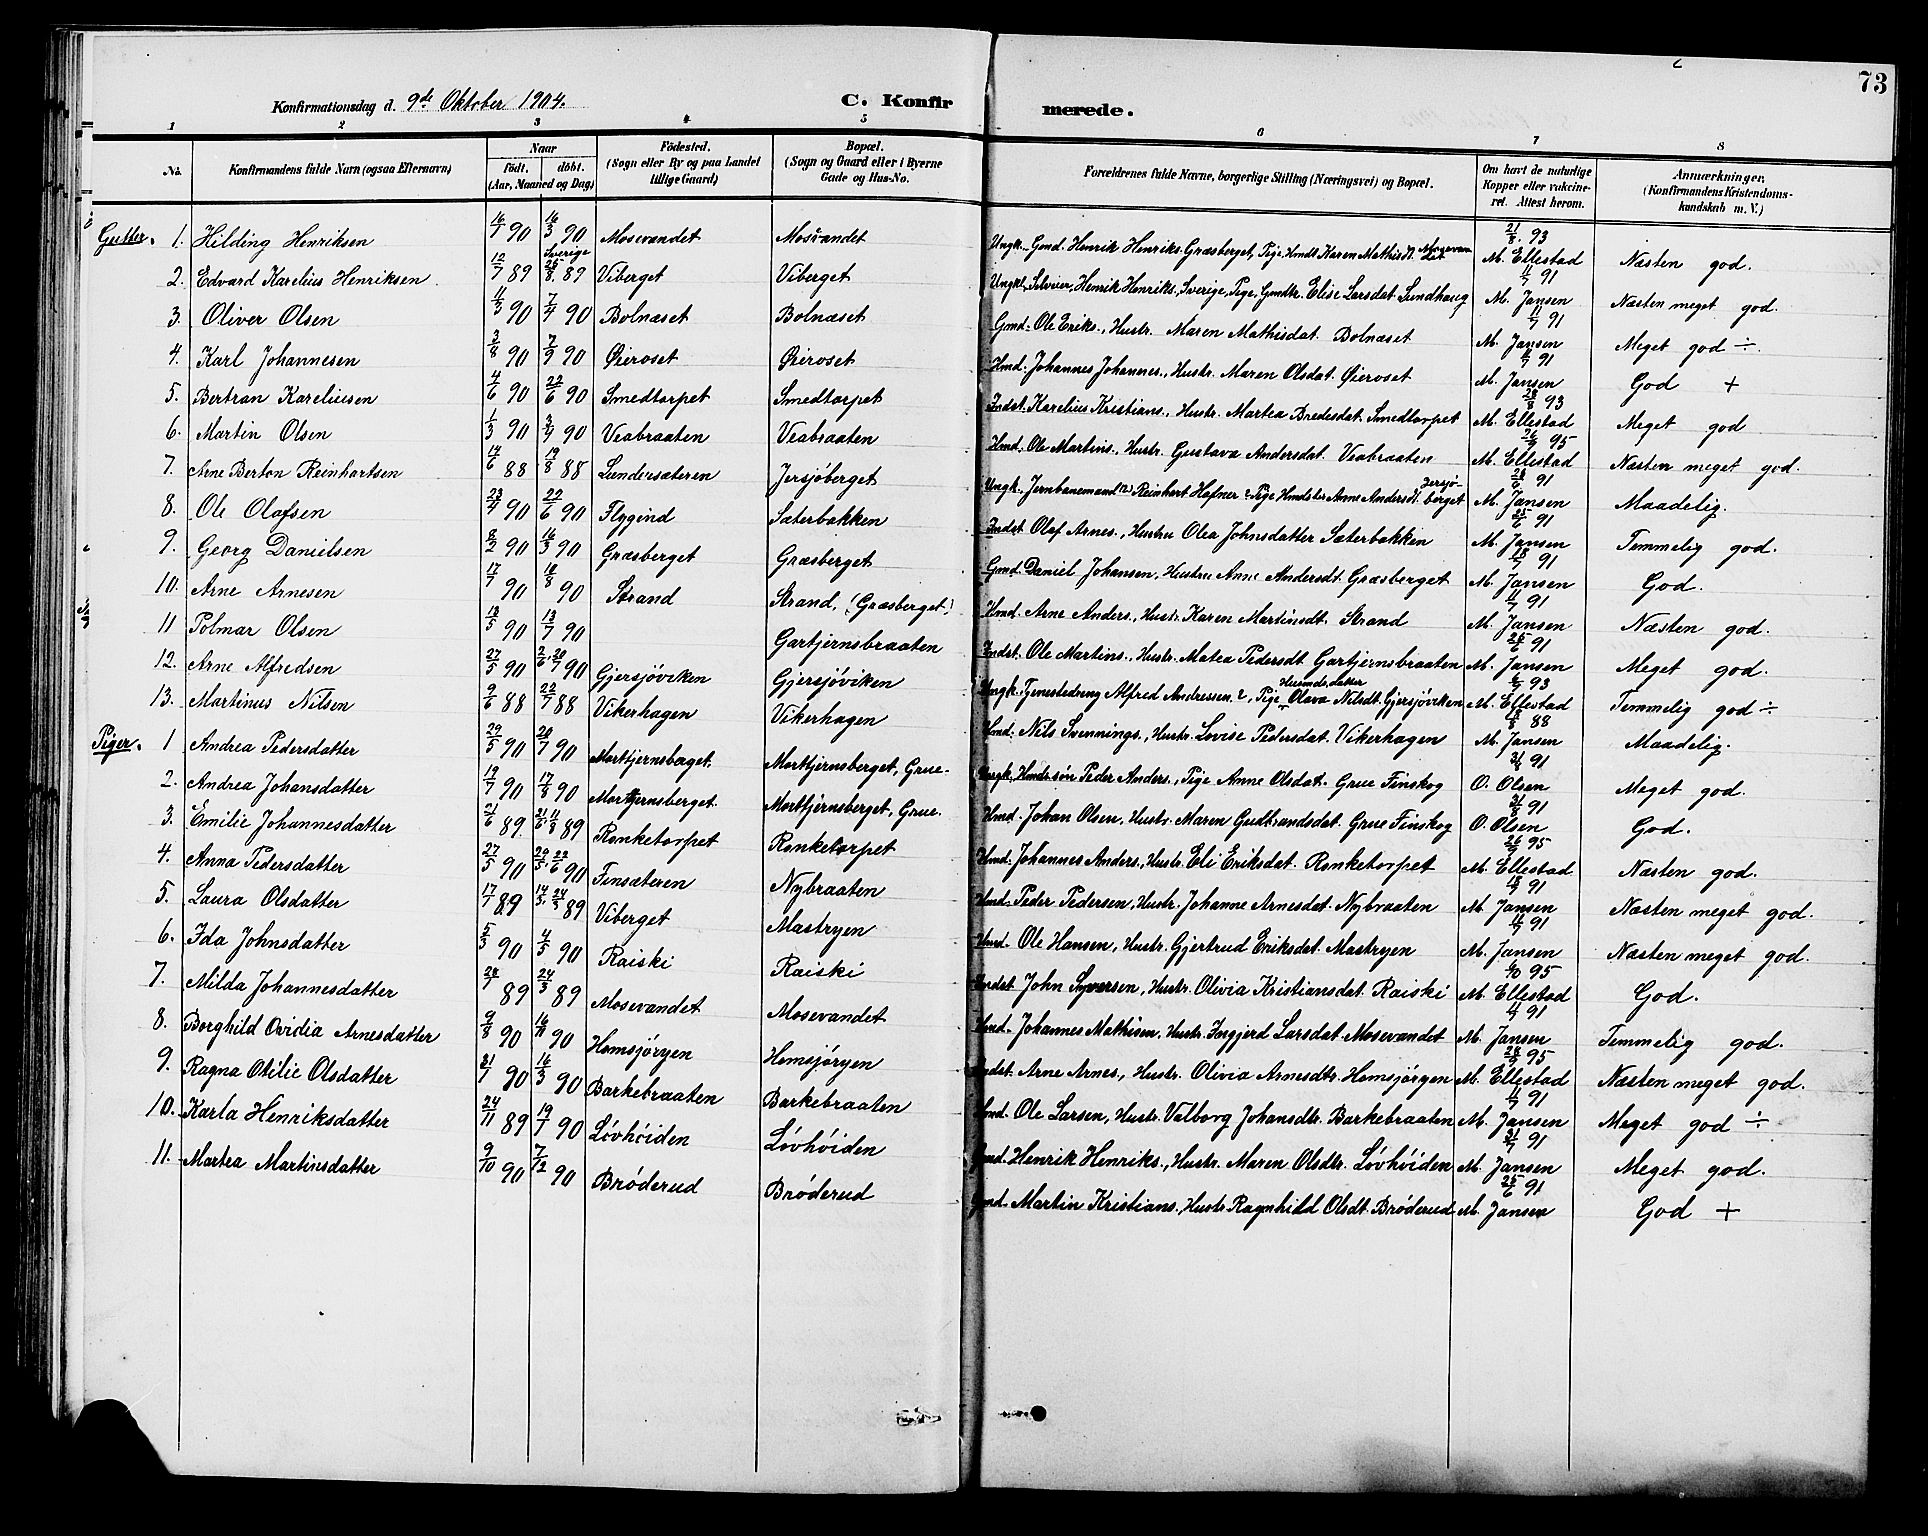 73
Konfirmationsdag d. 9de Oktober 1904. C. Konfirmerede.
1 2 3 4 5 6 7 8
No. Konfirmandens fulde Navn (ogsaa Efternavn) Naar födt, döbt. (Aar, Maaned og Dag) Födested. (Sogn eller By og paa Landet tillige Gaard) Bopæl. (Sogn og Gaard eller i Byerne Gade og Hus-No. Forældrenes fulde Navne, borgerlige Stilling (Næringsvei) og Bopæl. Om havt de naturlige Kopper eller vakcineret. Attest herom. Anmærkninger. (Konfirmandens Kristendomskundskab m. V.)
Gutter. 1. Hilding Henriksen 16/1 90 16/3 90 Mosevandet Mosevandet Ungk. Gmd. Henrik Henriks. Græsberget, Pige Hmdt Karen Mathisdt. Mosevandet 21/8 93 M. Ellestad Næsten god.
2. Edvard Karelius Henriksen 12/7 89 Sverige 25/8 89 Viberget Viberget Ungkl. Selveier, Henrik Henriks., Sverige, Pige, Gmdtr. Elise Larsdat. Lundhaug 11/7 91 M. Jansen Næsten meget god.
3. Oliver Olsen 11/3 90 7/4 90 Bolnæset Bolnæset Gmd. Ole Eriks., Hustr. Maren Mathisdat. Bolnæset 11/7 91 M. Jansen Meget god ÷.
4. Karl Johannesen 3/8 90 7/9 90 Øieroset Øieroset Hmd. Johannes Johannes., Hustr. Maren Olsdat. Øieroset 11/7 91 M. Jansen God +
5. Bertran Kareliusen 4/6 90 22/6 90 Smedtorpet Smedtorpet Indst. Karelius Kristians., Hustr. Martea Bredesdat. Smedtorpet 28/8 93 M. Ellestad Meget god
6. Martin Olsen 1/3 90 3/4 90 Veabraaten Veabraaten Hmd. Ole Martins., Hustr. Gustava Andersdat. Veabraaten 26/9 95 M. Ellestad Næsten meget god.
7. Arne Berton Reinhartsen 14/6 88 19/8 88 Lundersæteren Jersjøberget Ungk. Jernbanemand Reinhert Hafner & Pige Hmdstr Anne Andersdt. Jersjøberget 28/6 91 M. Jansen Maadelig.
8. Ole Olafsen 23/4 90 22/6 90 Flygind Sæterbakken Indst. Olaf Arnes., Hustru Olea Johnsdatter Sæterbakken 25/6 91 M. Jansen Temmelig god.
9. Georg Danielsen 8/2 90 16/3 90 Græsberget Græsberget Gmd. Daniel Johansen, Hustru Anne Andersdt. Græsberget 18/7 91 M. Jansen God.
10. Arne Arnesen 17/7 90 18/8 90 Strand Strand, (Græsberget) Hmd. Arne Anders., Hustr. Karen Martinsdt. Strand 11/7 91 M. Jansen Næsten god.
11 Polmar Olsen 18/5 90 13/7 90 Gartjernsbraaten Indst. Ole Martins., Hustr. Matea Pedersdt. Gartjernsbraaten 25/6 91 M. Jansen Meget god.
12. Arne Alfredsen 27/5 90 2/6 20/7 90 Gjersjöviken Gjersjöviken Ungk. Tjenestedreng Alfred Andressen &, Pige Husmdsdatter Olava Nilsdt. Gjersjöviken 6/7 93 M. Ellestad Temmelig god ÷
13. Martinus Nilsen 9/6 88 22/7 88 Vikerhagen Vikerhagen Hmd. Nils Svennings., Hustr. Lovise Pedersdat. Vikerhagen 18/8 88 M. Jansen Maadelig.
Piger. 1 Andrea Pedersdatter 29/5 90 20/7 90 Morttjernsberget. Morttjernsberget, Grue. Ungk. Hmds søn Peder Anders., Pige Anne Olsdat. Grue Finskog 31/8 91 O. Olsen Meget god.
2. Andrea Johansdatter 19/7 90 17/8 90 Morttjernsberget. Morttjernsberget, Grue. Hmd. Johan Olsen, Hustr. Maren Gudbrandsdat. Grue Finskog 31/8 91 O. Olsen God.
3. Emilie Johannesdatter 21/6 89 21/6 11/8 89 Ronketorpet Ronketorpet Hmd. Johannes Anders., Hustr. Eli Eriksdat. Ronketorpet 26/9 95 M. Ellestad Næsten god.
4. Anna Pedersdatter 27/5 90 29/5 22/6 90 Finsæteren Nybraaten Hmd. Peder Pedersen, Hustr. Johanne Arnesdat. Nybraaten 18/7 91 M. Jansen Næsten meget god.
5. Laura Olsdatter 17/7 89 24/3 89 Viberget Mastryen Hmd. Ole Hansen, Hustr. Gjertrud Eriksdat. Mastryen 11/7 91 M. Jansen Næsten meget god.
6. Ida Johnsdatter 5/3 90 4/5 90 Raiski Raiski Indst. John Syversen, Hustr. Olivia Kristiansdat. Raiski 95 M. Ellestad God.
7. Milda Johannesdatter 28/7 89 24/3 89 Mosevandet Mosevandet Hmd. Johannes Mathisen, Hustr. Ingjerd Larsdat. Mosevandet 11/7 91 M. Jansen Temmelig god.
8. Borghild Ovidia Arnesdatter 9/8 90 90 Homsjöryen Homsjöryen Indst. Arne Arnes., Hustr. Olivia Arnesdtr. Homsjöryen 28/9 95 M. Ellestad Næsten meget god.
9. Ragna Otilie Olsdatter 31/7 90 16/3 90 Barkebraaten Barkebraaten Hmd. Ole Larsen, Hustr. Valborg Johansdtr. Barkebraaten 11/7 91 M. Jansen Meget god ÷
10. Karla Henriksdatter 24/11 89 19/1 90 Lövhöiden Lövhöiden Gmd. Henrik Henriks., Hustr. Maren Olsdtr. Lövhöiden 21/7 91 M. Jansen Meget god.
11. Martea Martinsdatter 9/10 90 7/12 90 Bröderud Bröderud Gmd. Martin Kristians. Hustr. Ragnhild Olsdt. Bröderud 25/6 91 M. Jansen God +